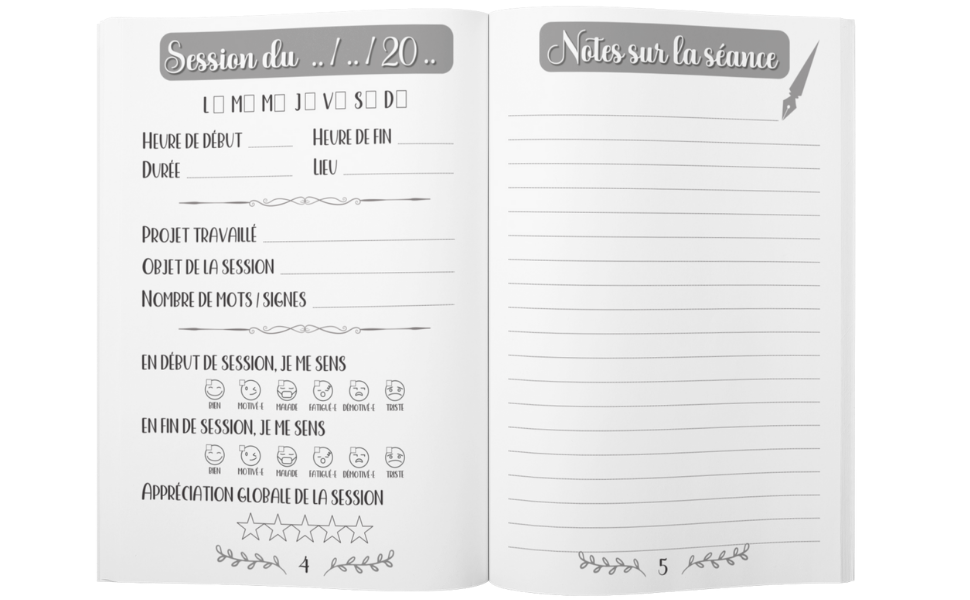 Session du ../../20..
L□ M□ M□ J□ V□ S□ D□
HEURE DE DÉBUT ____ HEURE DE FIN ____
DURÉE ____ LIEU ____
PROJET TRAVAILLÉ ____
OBJET DE LA SESSION ____
NOMBRE DE MOTS / SIGNES ____
EN DÉBUT DE SESSION, JE ME SENS
BIEN MOTIVÉ-E MALADE FATIGUÉ-E DÉMOTIVÉ-E TRISTE
EN FIN DE SESSION, JE ME SENS
BIEN MOTIVÉ-E MALADE FATIGUÉ-E DÉMOTIVÉ-E TRISTE
APPRÉCIATION GLOBALE DE LA SESSION
4
Notes sur la séance
5